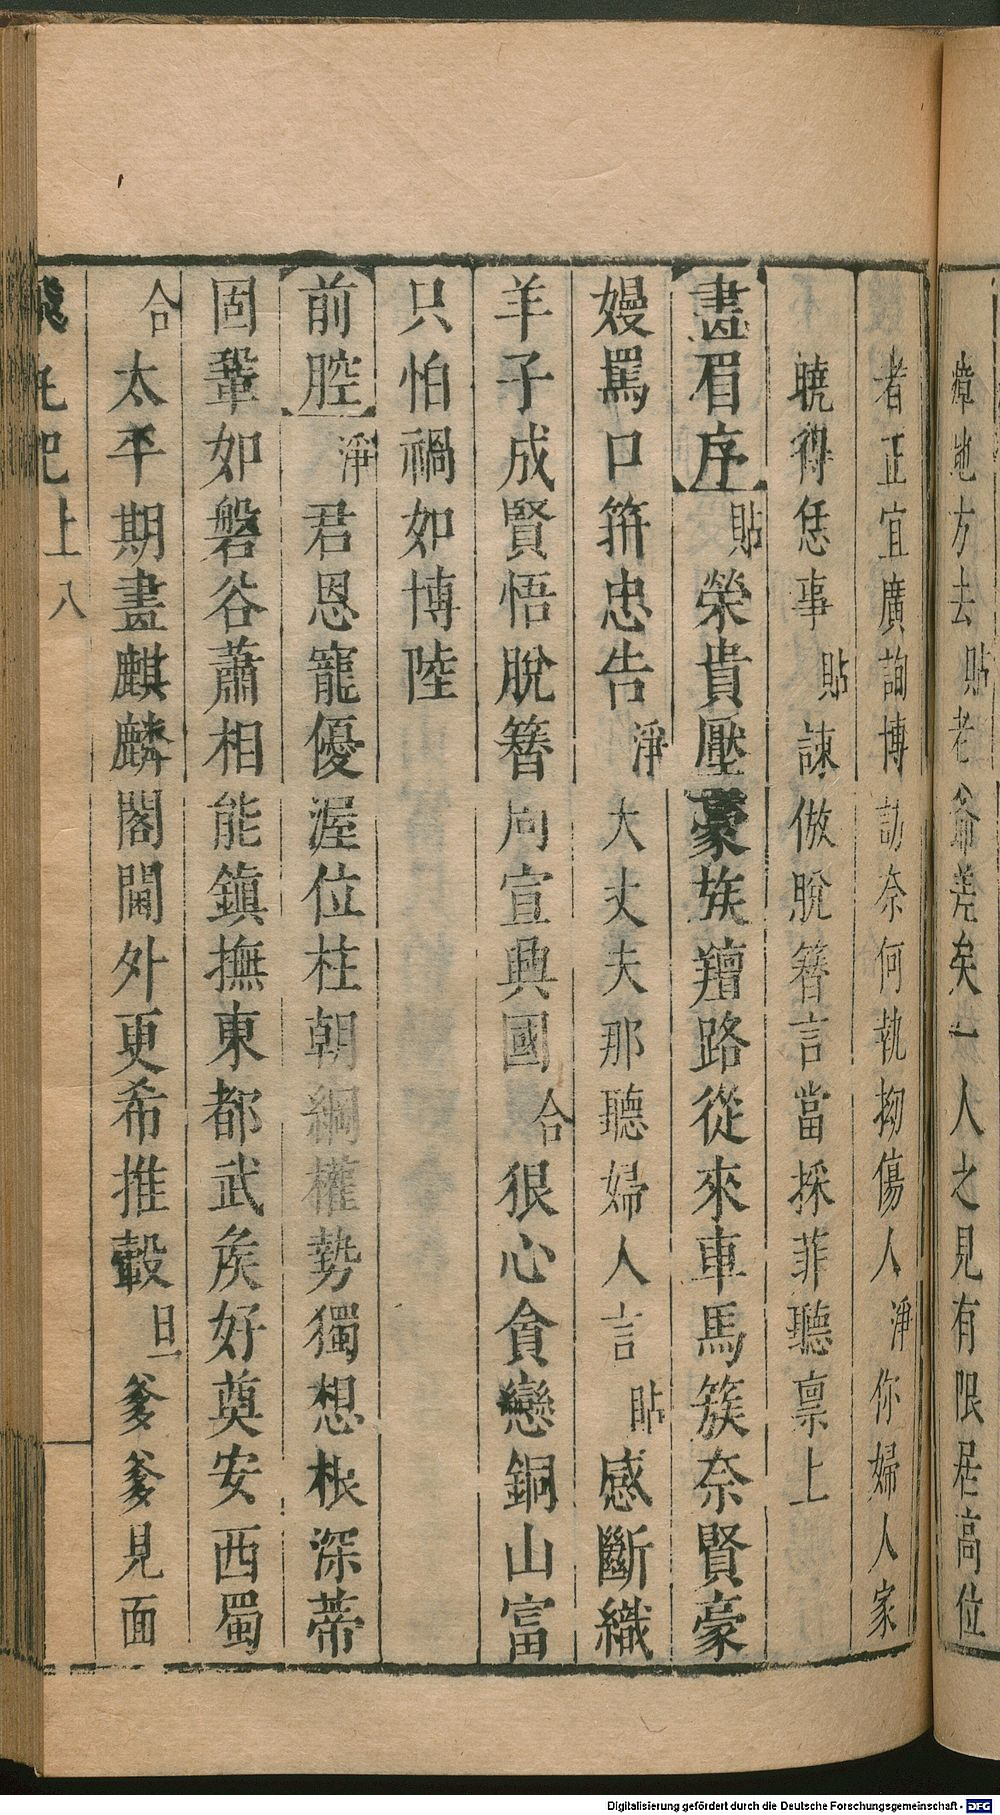 瘴地方去貼老爺差矣一人之見有限居高位
者正宜廣詢博訪奈何執拗傷人淨你婦人家
曉得恁事貼諫倣脫簪言當採菲聽禀上
畫眉序貼榮貴壓豪族羶路從來車馬簇奈賢豪
嫚罵口箝忠告淨大丈夫那聽婦人言貼感斷織
羊子成賢悟脫簪周宣興國合狠心貪戀銅山富
只怕禍如博陸
前腔淨君恩寵優渥位柱朝綱權勢獨想根深蒂
固鞏如磐谷蕭相能鎮撫東都武矦好奠安西蜀
合太平期畫麒麟閣閫外更希推轂旦爹爹見面
上 八
Digitalisierung gefördert durch die Deutsche Forschungsgemeinschaft - DFG